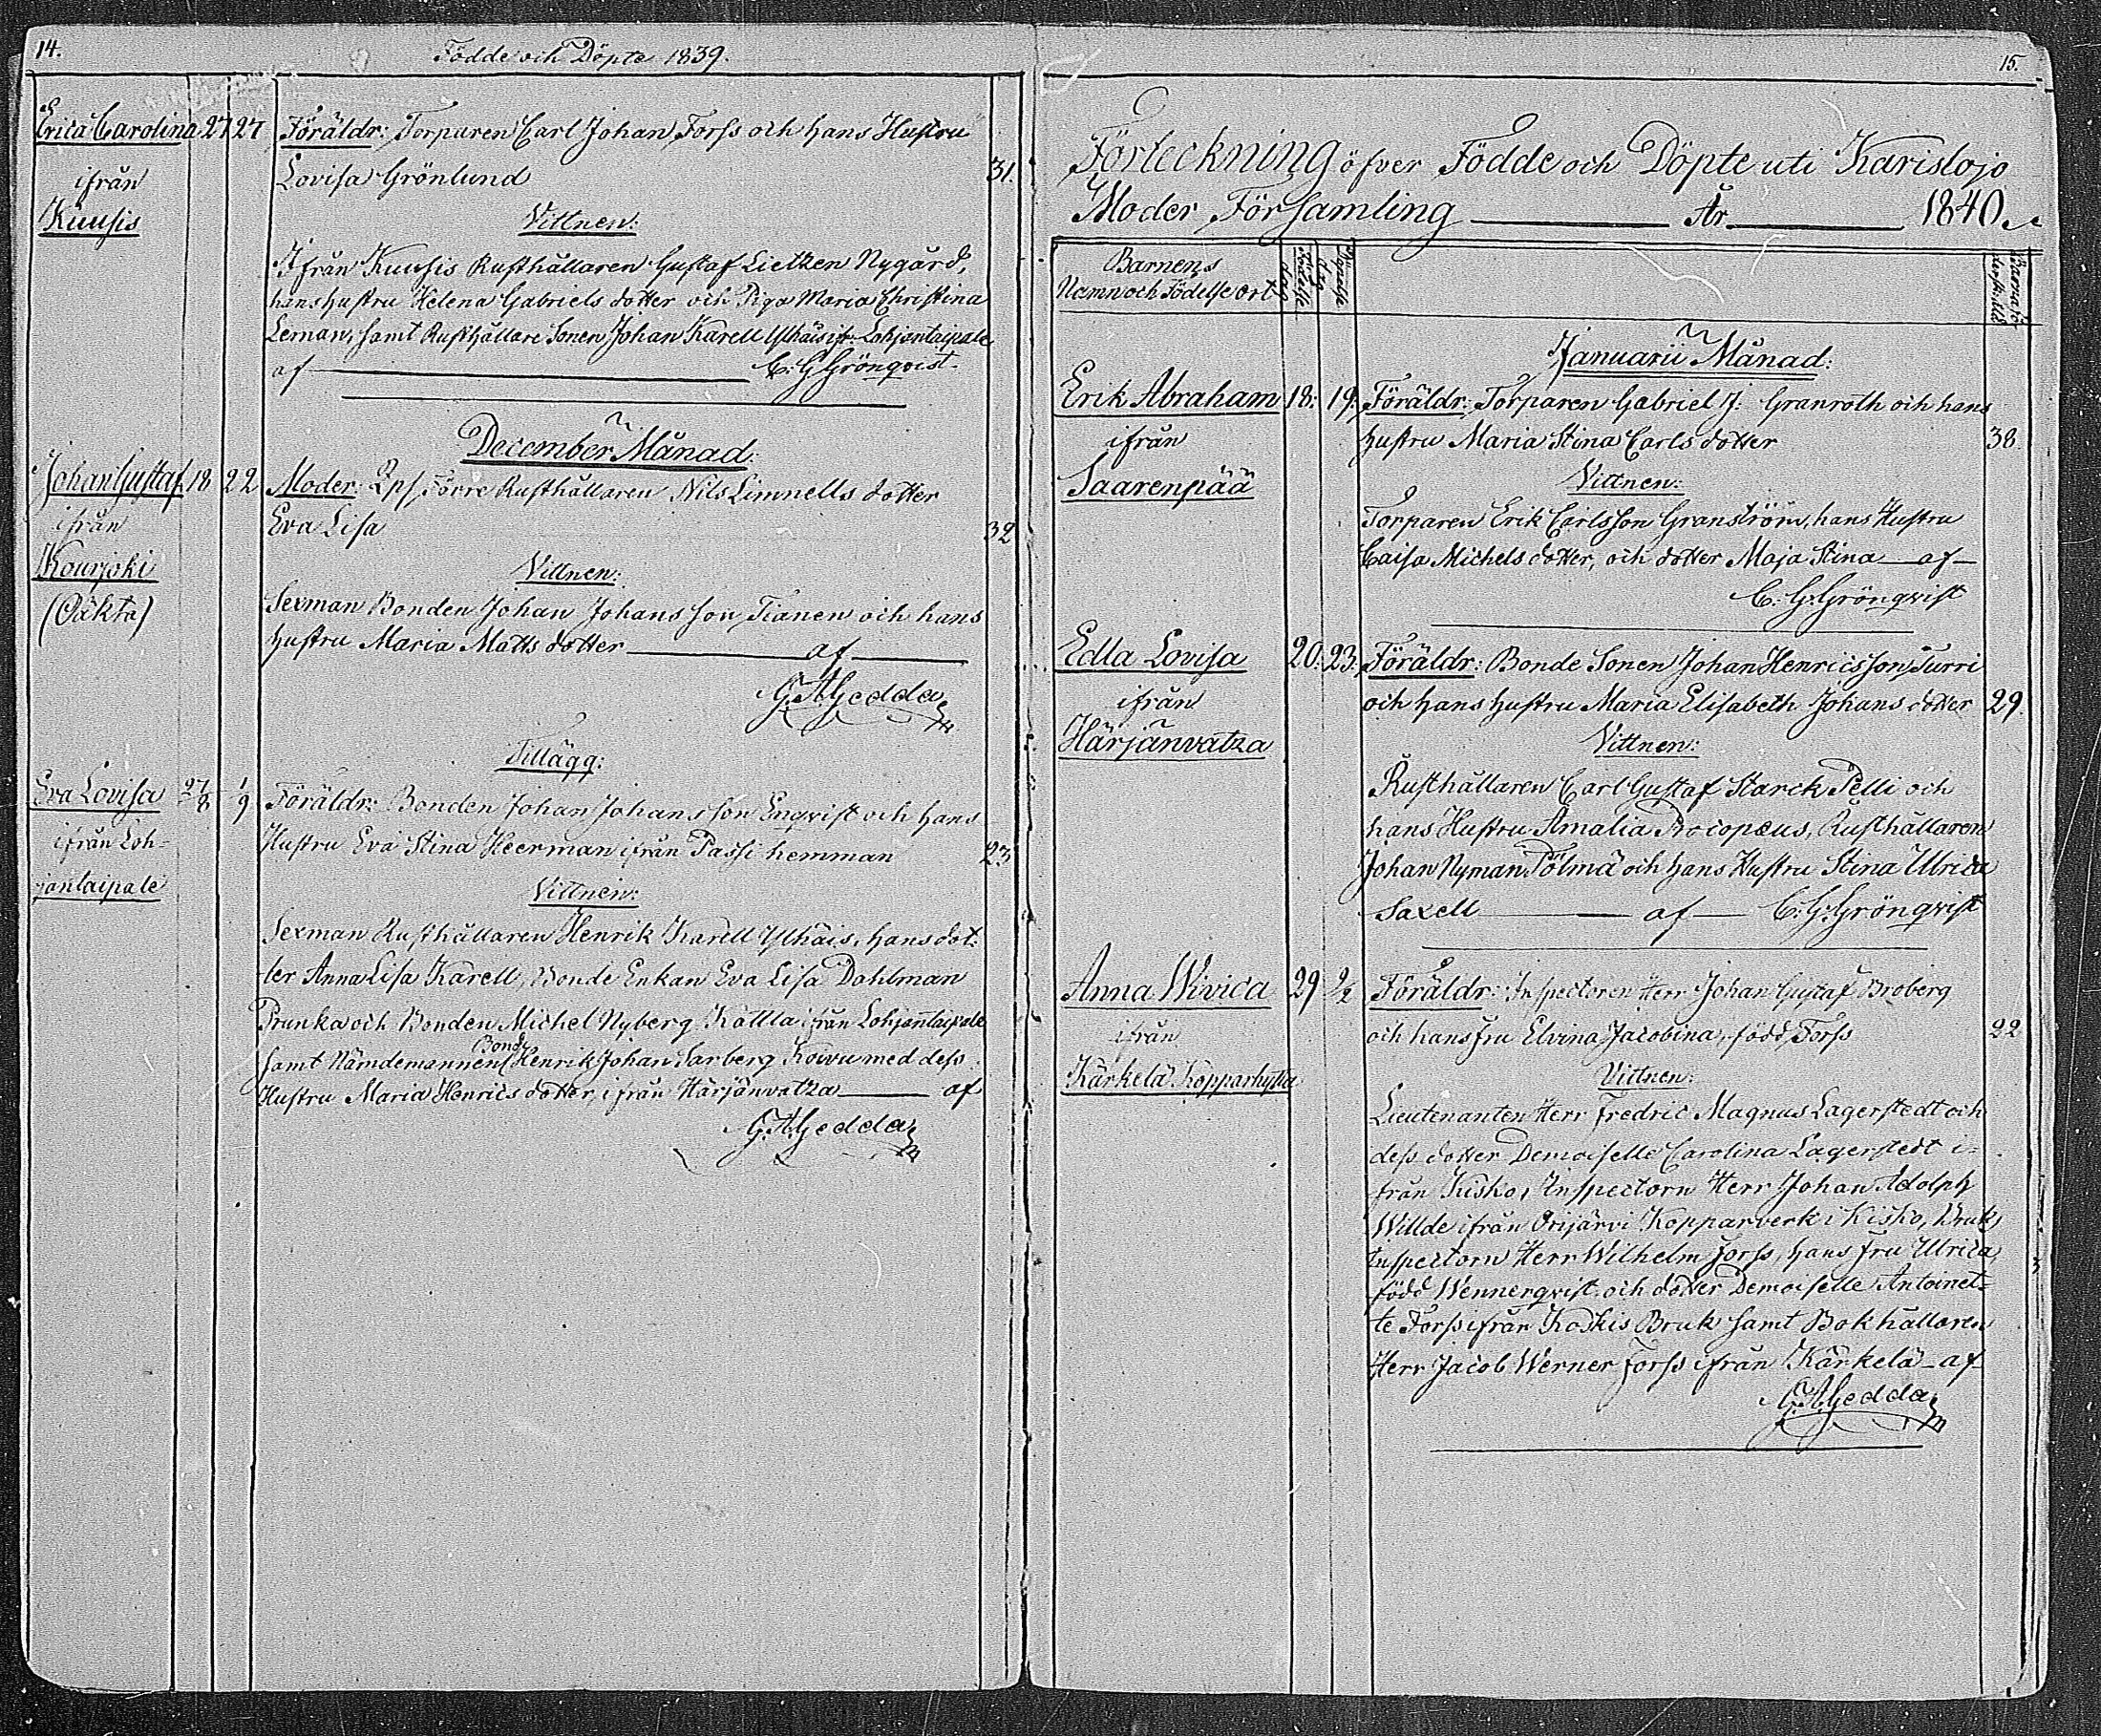 14.
Födde och Döpte 1839.
Erica Carolina 27 27 Föräldr: Torparen Carl Johan Forss och hans Hustru
ifrån Lovisa Grönlund 31.
Kuusis
Vittnen:
Ifrån Kuusis Rusthållaren Gustaf Lietzen Nygård,
hans hustru Helena Gabriels dotter och Piga Maria Christina
Leman, samt Rusthållare Sonen Johan Karell Ylhäis ifr: Lohjantaipale
af C: G Grönqvist.
December Månad:
Johan Gustaf 18 22 Moder: Qps. Förre Rusthållaren Nils Limnells dotter
ifrån Eva Lisa 32
Kourjoki
(Oäkta)
Vittnen:
Sexman Bonden Johan Johans son Tianen och hans
hustru Maria Matts dotter af
G. A. Gedda
Tillägg:
Eva Lovisa 27/8 1/9 Föräldr: Bonden Johan Johans son Enqvist och hans
ifrån Loh- Hustru Eva Stina Heerman ifrån Passi hemman 23
jantaipale
Vittnen:
Sexman Rusthållaren Henrik Karell Ylhäis, hans dot-
ter Anna Lisa Karell, Bonde Enkan Eva Lisa Dahlman
Prunka och Bonden Michel Nyberg Källla ifrån Lohjantaipale
Bond.
samt Nämdemannen Henrik Johan Sarberg Koivu med dess
Hustru Maria Henrics dotter, ifrån Härjänvatza af
G. A. Gedda
15.
Förteckning öfver Födde och Döpte uti Karislojo
Moder Församling År 1840.
Barnens
Namn och Födelse ort
Födelse dag
Döpelse dag
Januarii Månad:
Erik Abraham 18: 19: Föräldr: Torparen Gabriel J: Granroth och hans
ifrån hustru Maria Stina Carls dotter 38.
Saarenpää
Vittnen:
Torparen Erik Carlsson Granström, hans Hustru
Caisa Michels dotter, och dotter Maja Stina af
C: G: Grönqvist
Edla Lovisa 20: 23: Föräldr: Bonde Sonen Johan Henricsson Turri
ifrån och hans hustru Maria Elisabeth Johans dotter 29.
Härjänvatza
Vittnen:
Rusthållaren Carl Gustaf Starck Pelli och
hans Hustru Amalia Procopæus, Rusthållaren
Johan Nyman Tölmä och hans Hustru Stina Ulrica
Saxell af C: G: Grönqvist
Anna Wivica 29 2/2 Föräldr: Inspectoren Herr Johan Gustaf Broberg
ifrån och hans fru Elvina Jacobina, född Forss 22
Kärkelä Kopparhytta
Vittnen:
Lieutenanten Herr Fredric Magnus Lagerstedt och
dess dotter Demoiselle Carolina Lagerstedt i-
från Kisko, Inspectorn Herr Johan Adolph
Willde ifrån Orijärvi Kopparverk i Kisko, Bruks
Inspectorn Herr Wilhelm Forss, hans fru Ulrica,
född Wennerqvist och dotter Demoiselle Antoinet-
te Forss ifrån Koskis Bruk samt Bokhållaren
Herr Jacob Werner Forss ifrån Kärkelä af
G. A. Gedda